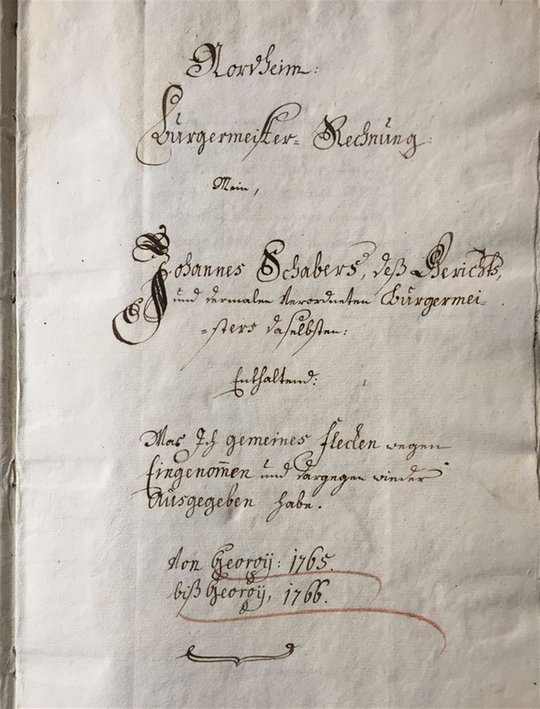 Nordheim:
Burgermeister- Rechnung
Mein,
Johannes Schabers, deß Gerichts,
und dermalen verordneten Burgermei-
-sters daselbsten:
Enthaltend:
Was Ich gemeines Flecken wegen
Eingenom̄en und dargegen wieder
Ausgegeben habe.
Von Georgÿ: 1765.
biß Georgÿ, 1766.